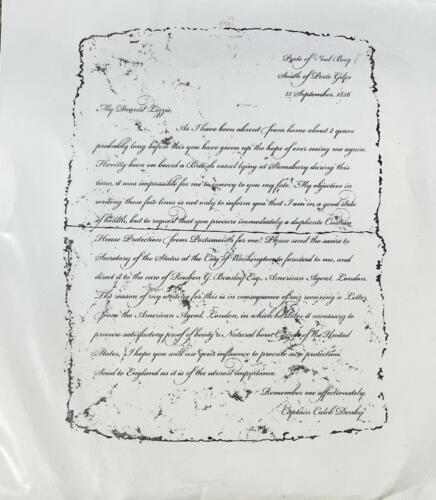 Ports of Neil Bay
South of Porte Gilps
15 September, 1856
My Dearest Lizzie,
As I have been absent from home about 2 years
probably long before this you have given up the hope of ever seeing me again.
Having been on board a British vessel lying at Stemsburg during this
time, it was impossible for me to convey to you my fate. My objective in
writing these few lines is not only to inform you that I am in a good state
of health, but to request that you procure immediately a duplicate Custom
House Protection from Portsmouth for me! Please send the same to
Secretary of the States at the City of Washington to forward to me, and
direct it to the care of Reuben G. Beasley Esq., American Agent, London.
The reason of my writing for this is in consequence of my receiving a Letter
from the American Agent, London, in which he states it necessary to
procure satisfactory proof of being a Natural born Citizen of the United
States, I hope you will use your influence to procure my protection.
Send to England as it is of the utmost importance.
Remember me affectionately,
Captain Caleb Denby